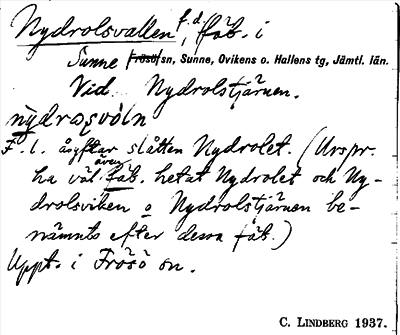 Nydrolsvallen f.d. fäb. i
Sunne Frösö sn, Sunne, Ovikens o. Hallens tg, Jämtl. län.
Vid Nydrolstjärnen.
F. l. åsyftar slåtten Nydrolet. (Urspr.
ha väl även fäb. hetat Nydrolet och Ny-
drolsviken o Nydrolstjärnen be-
nämnts efter dessa fäb.)
Uppt. i Frösö sn.
C. LINDBERG 1937.